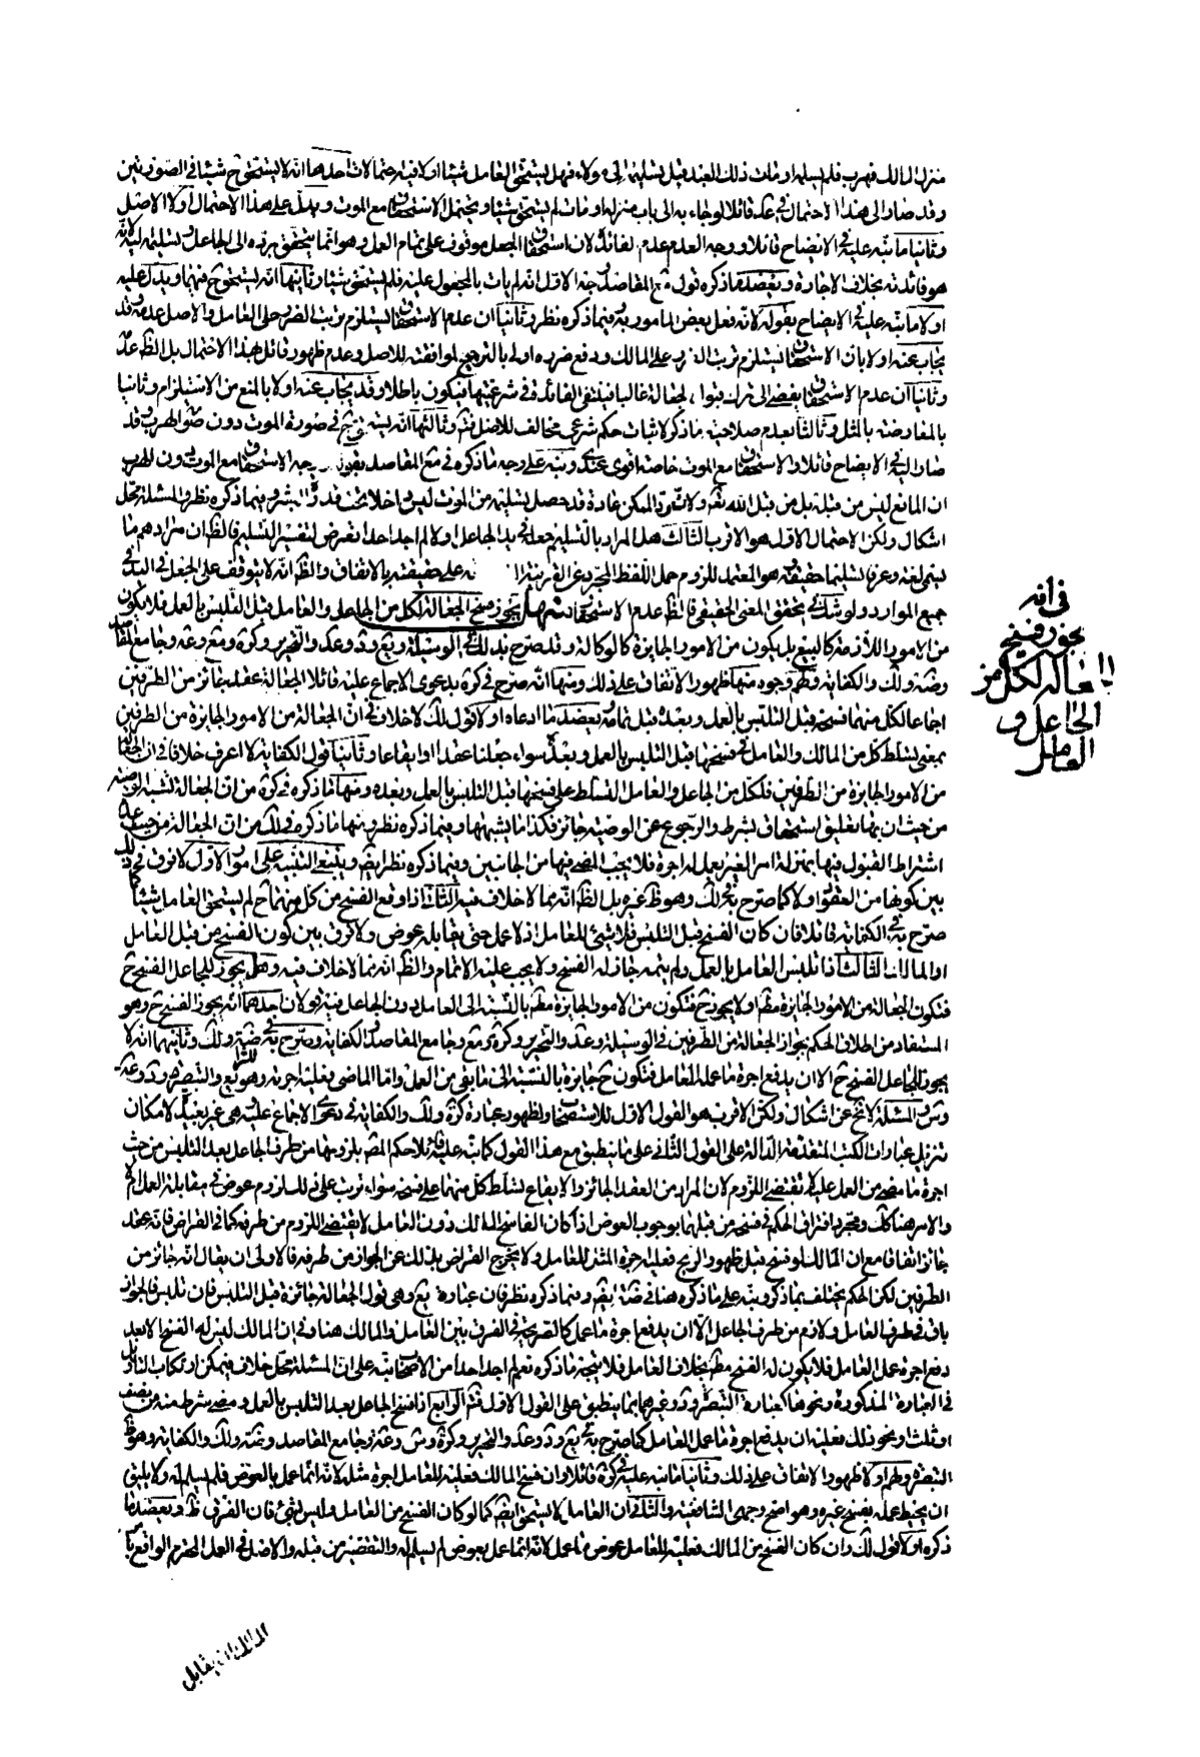 منزل المالك فهرب فلم يسلمه او مات ذلك العبد قبل تسليمه الى مولاه فهل يستحق العامل شيئا او لا فيه احتمالات احدها انه لا يستحق ح شيئا فى الصورتين
وقد صار الى هذا الاحتمال فى عد قائلا لو جاء به الى باب منزله او مات لم يستحق شيئا ويحتمل الاستحقاق مع الموت ويدل على هذا الاحتمال اولا الاصل
وثانيا ما نبه عليه فى الايضاح قائلا ووجه العدم عدم الفائدة لان استحقاق الجعل موقوف على تمام العمل وهو انما يتحقق برده الى الجاعل وتسليمه اليه لانه
هو فائدته بخلاف الاجارة ويعضد ما ذكره قول مع المقاصد وجه الاول انه لم يات بالمجعول عليه فلم يستحق شيئا وثانيها انه يستحق ح فيهما ويدل عليه
اولا ما نبه عليه فى الايضاح بقوله لانه فعل بعض المامور به وفيما ذكره نظر وثانيا ان عدم الاستحقاق يستلزم ترتب الضرر على العامل والاصل عدمه وقد
يجاب عنه اولا بان الاستحقاق يستلزم ترتب الضرر على المالك ودفع ضرره اولى بالترجيح لموافقته للاصل وعدم ظهور قائل بهذا الاحتمال بل الظ عدمه
وثانيا ان عدم الاستحقاق يفضى الى ترك قبول الجعالة غالبا فينتفى الفائدة فى شرعيتها فيكون باطلا وقد يجاب عنه اولا بالمنع من الاستلزام وثانيا
بالمعارضة بالمثل وثالثا بعدم صلاحية ما ذكر لاثبات حكم شرعى مخالف للاصل فتم وثالثها انه يستحق ح فى صورة الموت دون صورة الهرب وقد
صار اليه فى الايضاح قائلا والاستحقاق مع الموت خاصة اقوى عندى ونبه على وجه ما ذكره فى مع المقاصد بقوله وجه الاستحقاق مع الموت دون الهرب
ان المانع ليس من قبله بل من قبل الله تعالى ولانه المكن عادة قد حصل تسليمه من الموت ليس داخلا تحت قدرة البشر وفيما ذكره نظر والمسئلة محل
اشكال ولكن الاحتمال الاول هو الاقرب الثالث هل المراد بالتسليم جعله فى يد الجاعل او لا لم اجد احدا تعرض لتفسير التسليم فالظ ان مرادهم ما
يسمى لغة وعرفا تسليما حقيقة هو المعتمد للزوم حمل اللفظ المجرد عن القرينة على حقيقته بالاتفاق والظ انه لا يتوقف على الجعل فى اليد فى
جميع الموارد ولو شك فى تحقق المعنى الحقيقى فالظ عدم الاستحقاق منهل يجوز فسخ الجعالة لكل من الجاعل والعامل قبل التلبس بالعمل فلا يكون
من الامور اللازمة كالبيع بل يكون من الامور الجايزة كالوكالة وقد صرح بذلك فى الوسيلة ويع وشد وعد والتحرير وكرة ومع وعه وجامع المقاصد
وضه ولك والكفاية ولهم وجوه منها ظهور الاتفاق على ذلك ومنها انه صرح فى كرة بدعوى الاجماع عليه قائلا الجعالة عقد جائز من الطرفين
اجماعا لكل منهما فسخه قبل التلبس بالعمل وبعده قبل تمامه ويعضد ما ادعاه اولا قول لك لا خلاف فى ان الجعالة من الامور الجايزة من الطرفين
بمعنى تسلط كل من المالك والعامل على فسخها قبل التلبس بالعمل وبعده سواء جعلنا عقدا او ايقاعا وثانيا قول الكفاية لا اعرف خلافا فى ان الجعالة
من الامور الجايزة من الطرفين فلكل من الجاعل والعامل التسلط على فسخها قبل التلبس بالعمل وبعده ومنها ما ذكره فى كرة من ان الجعالة تشبه الوصية
من حيث ان بها تعليق استحقاق بشرط والرجوع عن الوصية جائز فكذا ما يشبهها وفيما ذكره نظر ومنها ما ذكره فى لك من ان الجعالة من حيث عدم
اشتراط القبول فيها بمنزلة امر الغير بعمل له اجرة فلا يجب المضى فيها من الجانبين وفيما ذكره نظر ايضا وينبغى التنبيه على امور الاول لا فرق فى ذلك
بين كونها من العقود او لا كما صرح به فى لك وهو ظ غيره بل الظ انه مما لا خلاف فيه الثانى اذا وقع الفسخ من كل منهما ح لم يستحق العامل شيئا كما
صرح به فى الكفاية قائلا فان كان الفسخ قبل التلبس فلا شئ للعامل اذ لا عمل حتى يقابله عوض ولا فرق بين كون الفسخ من قبل العامل
او المالك الثالث اذا تلبس العامل بالعمل ولم يتمه جاز له الفسخ ولا يجب عليه الاتمام والظ انه مما لا خلاف فيه وهل يجوز للجاعل الفسخ ح
فتكون الجعالة من الامور الجايزة مطلقا او لا يجوز ح فتكون من الامور الجايزة مط بالنسبة الى العامل دون الجاعل فيه قولان احدهما انه يجوز الفسخ ح وهو
المستفاد من اطلاق الحكم بجواز الجعالة من الطرفين فى الوسيلة وعد والتحرير وكرة ومع وجامع المقاصد والكفاية وصرح به فى ضه ولك وثانيهما انه لا
يجوز للجاعل الفسخ ح الا ان يدفع اجرة ما عمله العامل فتكون ح جايزة بالنسبة الى ما بقى من العمل واما الماضى فعليه اجرته وهو للشرايع والتبصره وشد وعه
وش والمسئلة لا تخ عن اشكال ولكن الاقرب هو القول الاول للاستصحاب ولظهور عبارة كرة ولك والكفاية فى دعوى الاجماع عليه وهى غير بعيدة لامكان
تنزيل عبارات الكتب المتقدمة الدالة على القول الثانى على ما ينطبق مع هذا القول كما نبه عليه قائلا حكم المص بلزومها من طرف الجاعل بعد التلبس من حيث
اجرة ما مضى من العمل عليه لا تقتضى اللزوم لان المراد من العقد الجائز او الايقاع تسلط كل منهما على فسخه سواء ترتب على ذلك لزوم عوض فى مقابلة العمل ام لا
والامر هنا كك ومجرد افتراق الحكم فى فسخه من قبلهما بوجوب العوض اذا كان الفاسخ المالك دون العامل لا يقتضى اللزوم من طرفه كما فى القراض فانه عقد
جائز اتفاقا مع ان المالك لو فسخ قبل ظهور الربح فعليه اجرة المثل للعامل ولا يخرج القراض بذلك عن الجواز من طرفه فالاولى ان يقال انه جائز من
الطرفين لكن الحكم يختلف بما ذكر ونبه على ما ذكره هنا فى ضه ايضا وفيما ذكره نظر فان عبارة يع وهى قوله الجعالة جائزة قبل التلبس فان تلبس فالجواز
باق فى طرف العامل ولازم من طرف الجاعل الا ان يدفع اجرة ما عمل كالصريحة فى الفرق بين العامل والمالك هنا وفى ان المالك ليس له الفسخ الا بعد
دفع اجرة عمل العامل فلا يكون له الفسخ مط بخلاف العامل فلا يتجه ما ذكره نعم لم اجد احدا من الاصحاب نبه على ان المسئلة محل خلاف فيمكن ارتكاب التاويل
فى العبارة المذكورة ونحوها كعبارة التبصره وشد وغيرهما بما ينطبق على القول الاول فتم الرابع اذا فسخ الجاعل بعد التلبس بالعمل ومضى شطر منه من نصف
او ثلث او نحو ذلك فعليه ان يدفع اجرة ما عمل العامل كما صرح به فى يع وشد وعد والتحرير وكرة وش وعه وجامع المقاصد وضه ولك والكفاية وهو ظ
التبصره ولهم اولا ظهور الاتفاق على ذلك وثانيا ما نبه عليه فى كرة قائلا وان فسخ المالك فعليه للعامل اجرة مثله لانه انما عمل بالعوض فلم يسلم له ولا يليق
ان يحبط عمله بفسخ غيره وهو اصح وجهى الشافعية والثانى ان العامل لا يستحق ايضا كما لو كان الفسخ من العامل وليس بشئ فان الفرق ظ ويعضد ما
ذكره اولا قول لك وان كان الفسخ من المالك فعليه للعامل عوض ما عمل لانه انما عمل بعوض لم يسلم له والتقصير من قبله والاصل فى العمل المحترم الواقع بامر
المالك ان يقابل
فى انه
يجوز فسخ
الجعالة لكل من
الجاعل و
العامل